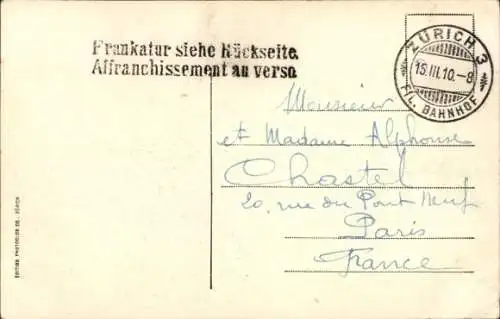 Frankatur siehe Rückseite.
Affranchissement au verso.
ZÜRICH 3
15.III.10.-8
FIL. BAHNHOF
Monsieur
et Madame Alphonse
Chastel
20, rue du Pont Neuf
Paris
France